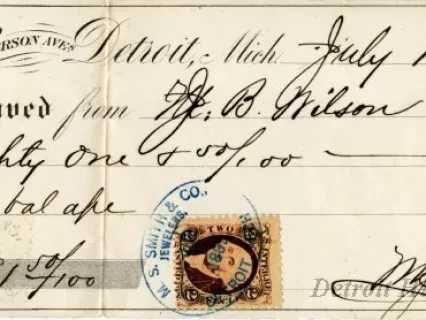 ERSON AVES
Detroit, Mich. July 1
ved from B. Wilson
hty One & 50/100
bal a
1 50/100
M. S. SMITH & CO.
JEWELERS,
DETROIT
TWO
2 2
Detroit